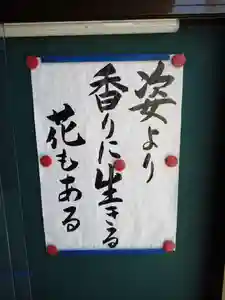 姿より
香りに生きる
花もある